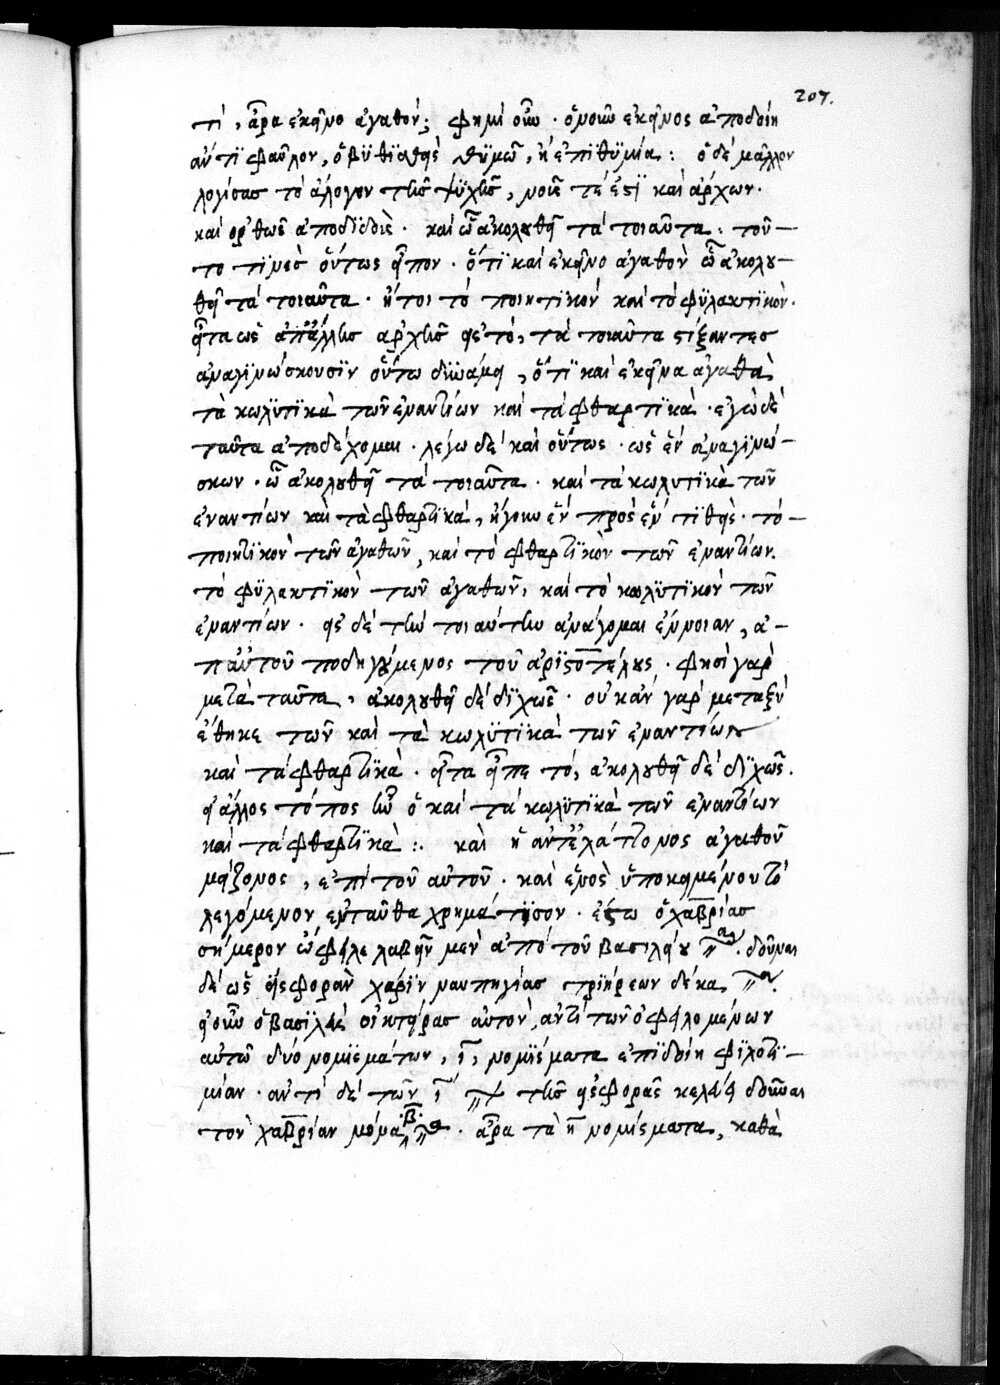 207.
τί, ἆρα ἐκεῖνο ἀγαθόν; φημὶ οὖν · ὁ νοῦν ἐκεῖνος ἀποδοίη
ἀντὶ φαῦλον, ὁ βυθισθεὶς θυμῶ, ἢ ἐπιθυμία : ὁ δὲ μᾶλλον
λογίσας τὸ ἄλογον τῆς ψυχῆς, νοῦς τέ ἐστι καὶ ἄρχων ·
καὶ ὀρθῶς ἀποδίδωσι · καὶ ὧ ἀκολουθεῖ τὰ τοιαῦτα : τοῦ-
το τινὲς οὕτως εἶπον · ὅτι καὶ ἐκεῖνο ἀγαθὸν ὧ ἀκολου-
θεῖ τὰ τοιαῦτα · ἤτοι τὸ ποιητικὸν καὶ τὸ φυλακτικὸν ·
εἶτα ὡς ἀπ' ἄλλης ἀρχῆς εἰς τό, τὰ τοιαῦτα στίξαντες
ἀναγινώσκουσιν οὕτω δυνάμει, ὅτι καὶ ἐκεῖνα ἀγαθὰ
τὰ κωλυτικὰ τῶν ἐναντίων καὶ τὰ φθαρτικὰ · ἐγὼ δὲ
ταῦτα ἀποδέχομαι · λέγω δὲ καὶ οὕτως · ὡς ἓν ἀναγινώ-
σκων · ὧ ἀκολουθεῖ τὰ τοιαῦτα · καὶ τὰ κωλυτικὰ τῶν
ἐναντίων καὶ τὰ φθαρτικὰ, ἤγουν ἓν πρὸς ἓν τιθεὶς · τὸ-
ποιητικὸν τῶν ἀγαθῶν, καὶ τὸ φθαρτικὸν τῶν ἐναντίων.
τὸ φυλακτικὸν τῶν ἀγαθῶν, καὶ τὸ κωλυτικὸν τῶν
ἐναντίων · εἰς δὲ τὴν τοιαύτην ἀνάγομαι ἔννοιαν, ἀ-
π' αὐτοῦ ποδηγούμενος τοῦ ἀριστοτέλους · φησὶ γὰρ
μετὰ ταῦτα, ἀκολουθεῖ δὲ διχῶς · οὐκ ἂν γὰρ μεταξὺ
ἔθηκε τῶν καὶ τὰ κωλυτικὰ τῶν ἐναντίων
καὶ τὰ φθαρτικὰ · εἶτα εἶπε τό, ἀκολουθεῖ δὲ διχῶς ·
εἰ ἄλλος τόπος ἦν ὁ καὶ τὰ κωλυτικὰ τῶν ἐναντίων
καὶ τὰ φθαρτικὰ :· καὶ ἡ ἀντ' ἐλάττονος ἀγαθοῦ
μείζονος, ἐπὶ τοῦ αὐτοῦ · καὶ ἑνὸς ὑποκειμένου τὸ
λεγόμενον ἐνταῦθα χρημάτισον · ἔστω ὁ χαβρίας
σήμερον ὤφειλε λαβεῖν μὲν ἀπὸ τοῦ βασιλέου · δοῦναι
δὲ ὡς εἰσφορὰν χάριν ναυπηγίας τριήρεων δέκα
εἰ οὖν ὁ βασιλεὺς οἰκτείρας αὐτὸν, ἀντὶ τῶν ὀφειλομένων
αὐτῶ δύο νομισμάτων, ι, νομίσματα ἐπιδοίη φιλοτι-
μίαν · ἀντὶ δὲ τῶν ι τῆς εἰσφορᾶς κελεύει δοῦναι
τὸν χαβρίαν μόνα β · ἆρα τὰ η νομίσματα, καθὰ